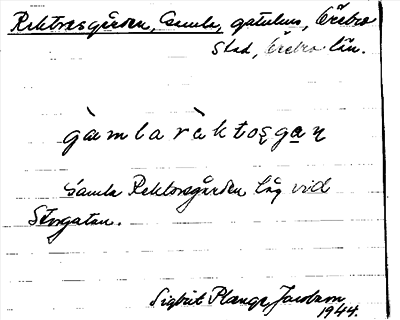 Rektorsgården, Gamla, gatuhus, Örebro
stad, Örebro län.
gàmla ràktoʂga̱ɳ
Gamla Rektorsgården låg vid
Storgatan.
Sigbrit Plænge Jacobson
1944.